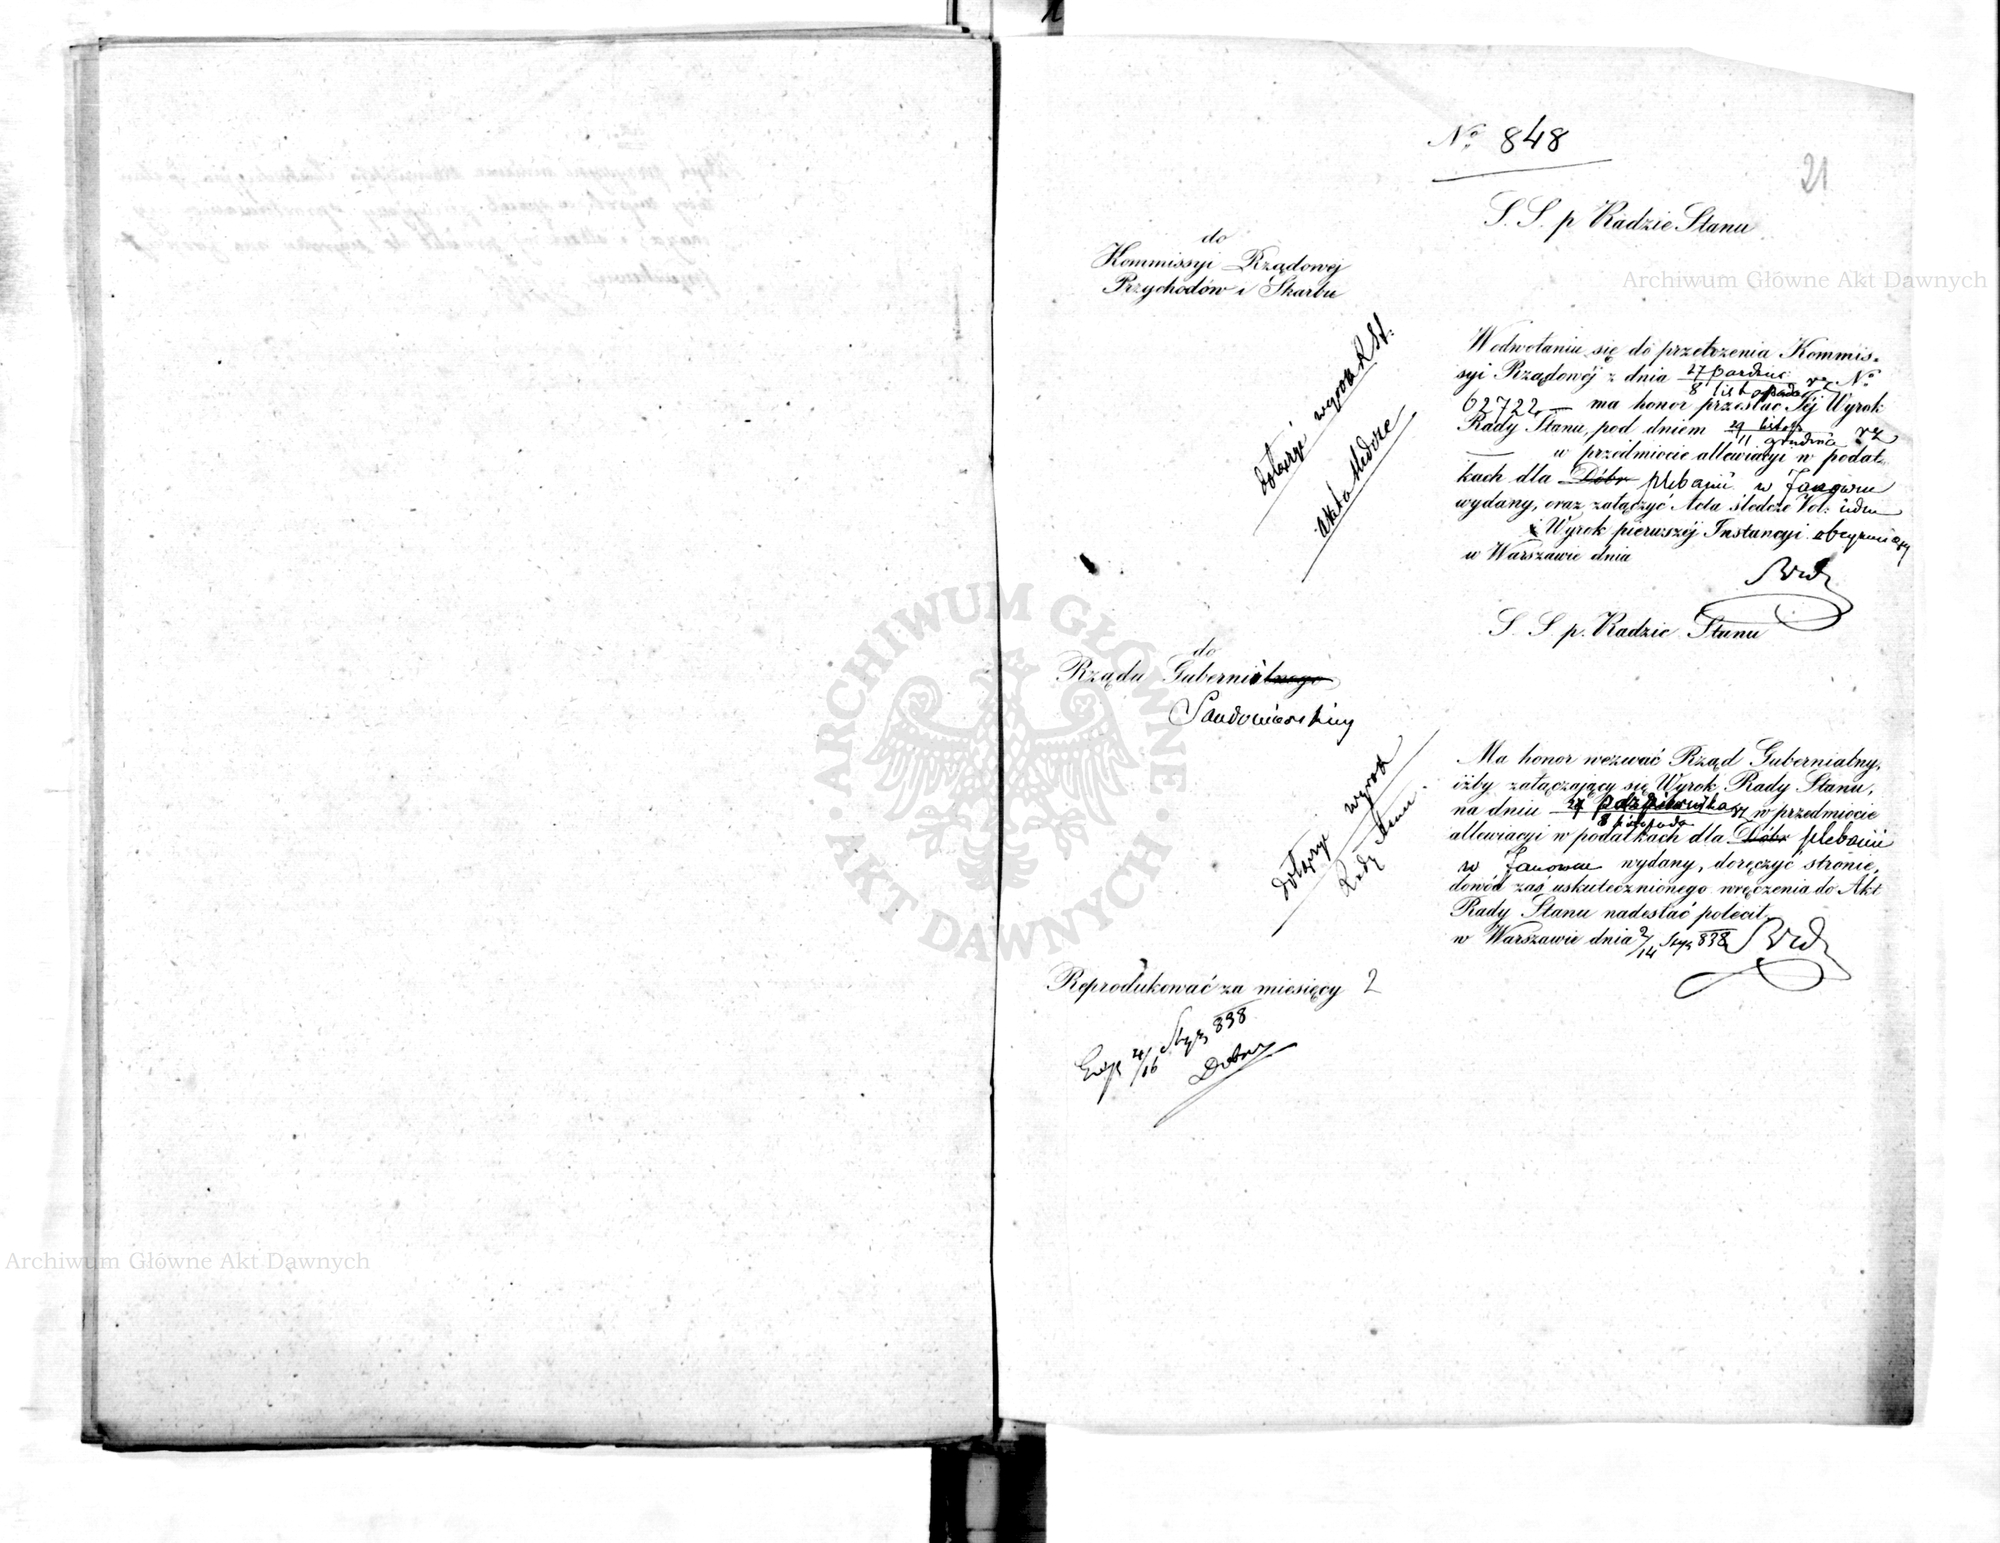 No 848
21
S. S. p Radzie Stanu
do
Kommissyi Rządowej
Przychodów i Skarbu
dołączyć wyrok R St.
akta śledcze
W odwołaniu się do przełożenia Kommis=
syi Rządowéj z dnia 27 paźdz: / 8 listopada rz No
62722 — ma honor przesłać Jéj Wyrok
Rady Stanu, pod dniem 29 listop / 11 grudnia rz
w przedmiocie allewiacyi w podat=
kach dla Dóbr plebanii w Janowcu
wydany, oraz załączyć Acta śledcze Vol:
i Wyrok pierwszéj Instancyi
w Warszawie dnia
S. S p. Radzie Stanu
do
Rządu Gubernialnego
Sandomierskiey
dołączyć wyrok
Rady Stanu
Ma honor wezwać Rząd Gubernialny,
iżby załączający się Wyrok Rady Stanu,
na dniu 27 października / 8 listopada rz w przedmiocie
allewiacyi w podatkach dla Dóbr plebanii
w Janowcu wydany, doręczyć stronie,
dowód zaś uskutecznionego wręczenia do Akt
Rady Stanu nadesłać polecił.
w Warszawie dnia 2/14 Stycz 838
Reprodukować za miesięcy 2
Exp 4/16 Stycz 838
Archiwum Główne Akt Dawnych
Archiwum Główne Akt Dawnych
ARCHIWUM GŁÓWNE · AKT DAWNYCH ·